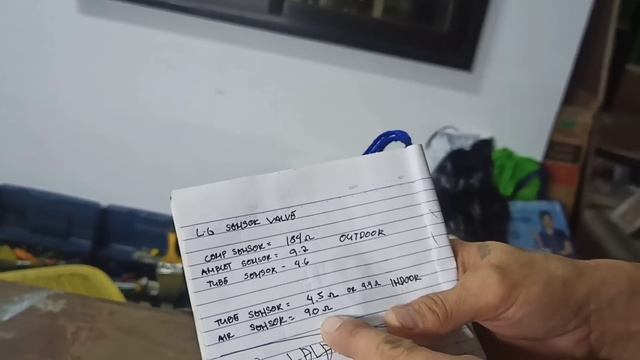 L.G SENSOR VALVE
COMP SENSOR = 184 Ω
AMBIET SENSOR = 9.2 OUTDOOR
TUBE SENSOR - 4.6
TUBE SENSOR = 4.5 Ω OR 9.9 Ω INDOOR
AIR SENSOR = 9.0 Ω